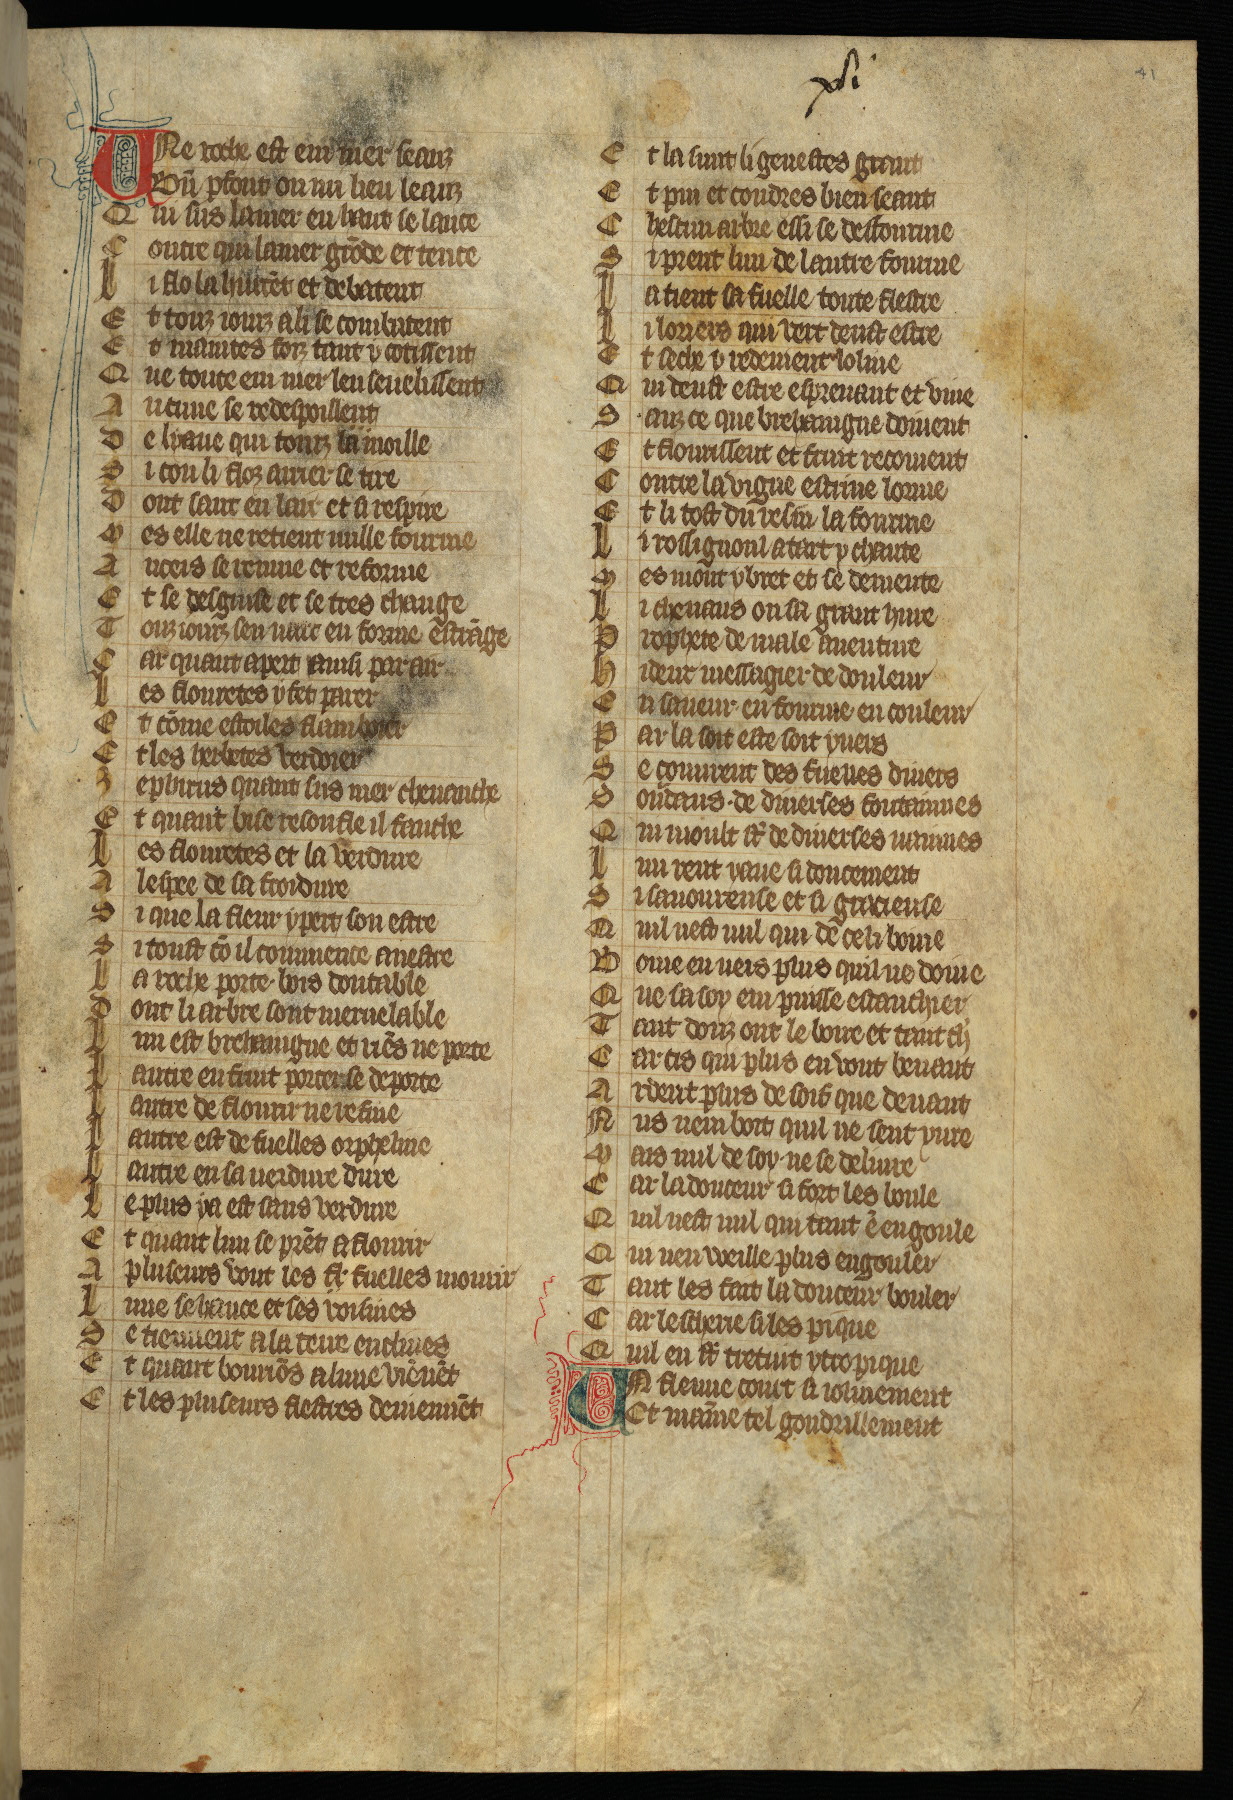 xli
41
Une roche est enu mer seanz
Bou pfont ou mi lieu leanz
Qui sus lamer en haut se lance
Contre qui lamer gronde et tence
Li flo la hurtēt et debatent
Et touz iourz a li se combatent
Et maintes foiz tant y cotissent
Que toute en mer lenseuelissent
Aucune se redespoillent
De lyaue qui touz la moille
Si con li floz arrier se tire
Dont saut en lair et si respire
Mes elle ne retient nulle fourme
Ainceis se remue et reforme
Et se desguise et se tres change
Touz iourz sen uait en forme estrāge
Car quant apert ainsi par air
Les flouretes y fet parer
Et cōme estoiles flamboier
Et les herbetes verdoier
Zephirus quant sus mer cheuauche
Et quant bise resoufle il fauche
Les flouretes et la verdure
A lespee de sa froidure
Si que la fleur y pert son estre
Si toust cō il commence a nestre
La roche porte bois doutable
Dont li arbre sont merueilable
Lun est brehaingne et riēs ne porte
Lautre en fruit porter se deporte
Lautre de flourir ne refine
Lautre est de fuelles orpheline
Lautre en sa uerdure dure
Le plus ya est sans verdure
Et quant lun se prēt a flourir
A pluseurs vont les fuelles mourir
Lune se hauce et ses voisines
Se tiennent a la terre enclines
Et quant bouriōs a lune viēnēt
Et les pluseurs flestres deuiennēt
Et la sunt li genestes grant
Et pin et coudres bien seant
Chescun arbre essi se deffourme
Si prent lun de lautre fourme
La tient sa fuelle toute flestre
Li loriers qui vert deust estre
Et seche y redeuient loliue
Qui deust estre espreuant et viue
Sauz ce que brehaingne doiuent
Et flourissent et fruit recoiuent
Contre la vigne estriue lorme
Et li tost du resin la fourme
Li rossignoul a tart y chante
Mes mout y bret et se demente
Li cheuaus ou sa grant hure
Prophete de male auenture
Hideur messagier de douleur
En saueur en fourme en couleur
Par la soit este soit yuers
Se couurent des fueues diuers
Soudaus de diuerses fontainnes
Qui moult st de diuerses uainnes
Lun rent yaue si doucement
Si sauoureuse et si gracieuse
Quil nest nul qui de celi boiue
Boiue en neis plus quil ne doiue
Que sa soy en puisse estanchier
Tant douz ont le boire et tant ch
Car cis qui plus en vont beuant
Ardent plus de soif que deuant
Nus nen boit quil ne sent yure
Mais nul de soy ne se deliure
Car la douceur si fort les boule
Quil nest nul qui tant ē engoule
Qui nen vueille plus engouler
Tant les fait la douceur bouler
Car lescherie si les pique
Quil en st trestuit ytropique
Un fleuue court si ioliuement
Et maīne tel goudrillement